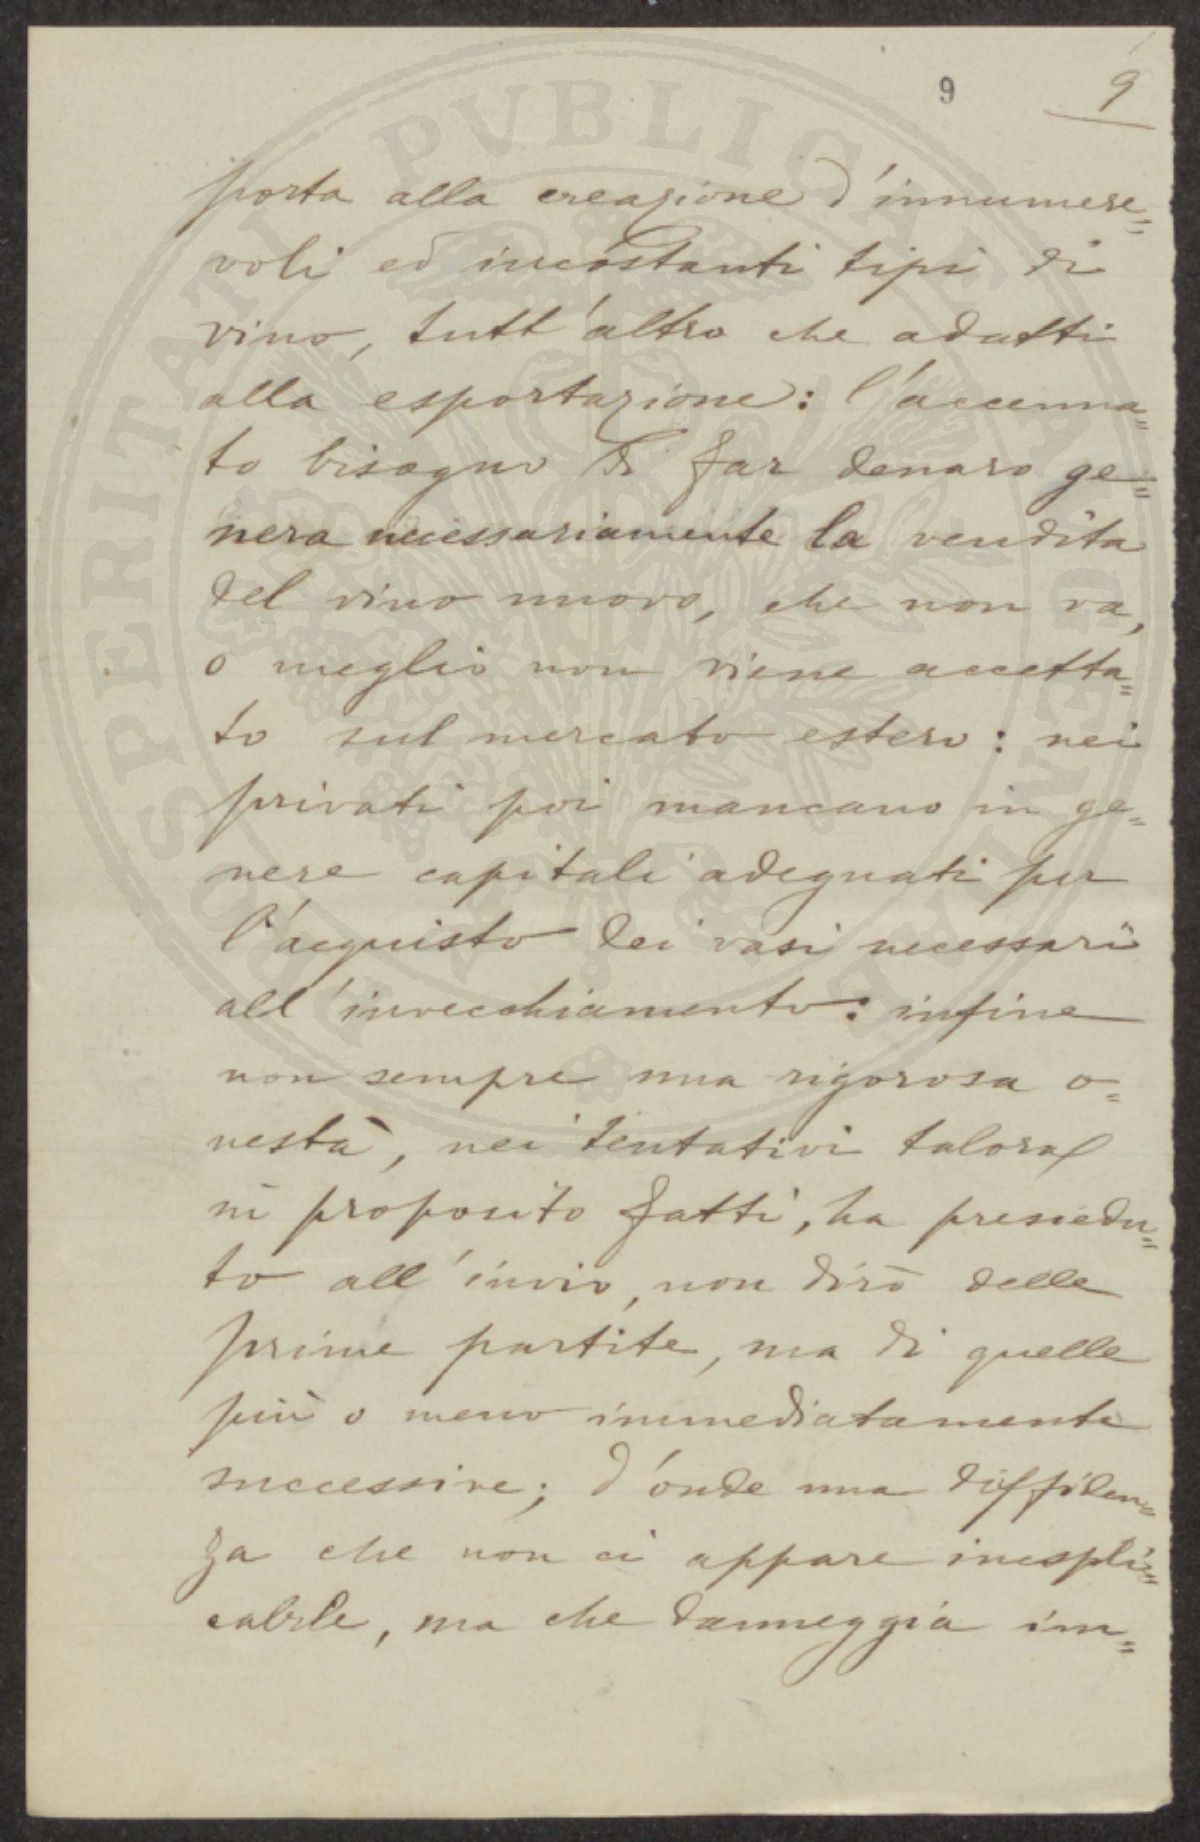 9 9
porta alla creazione d'innumere=
voli ed incostanti tipi di
vino, tutt'altro che adatti
alla esportazione: l'accenna=
to bisogno di far denaro ge=
nera necessariamente la vendita
del vino nuovo, che non va,
o meglio non viene accetta=
to sul mercato estero: nei
privati poi mancano in ge=
nere capitali adeguati per
l'acquisto dei vasi necessarii
all'invecchiamento: infine
non sempre una rigorosa o=
nestà, nei tentativi talora
in proposito fatti, ha presiedu=
to all'invio, non dirò delle
prime partite, ma di quelle
più o meno immediatamente
successive; d'onde una diffiden=
za che non ci appare inespli=
cabile, ma che danneggia im=
PROSPERITATI PVBLICAE AVGENDAE